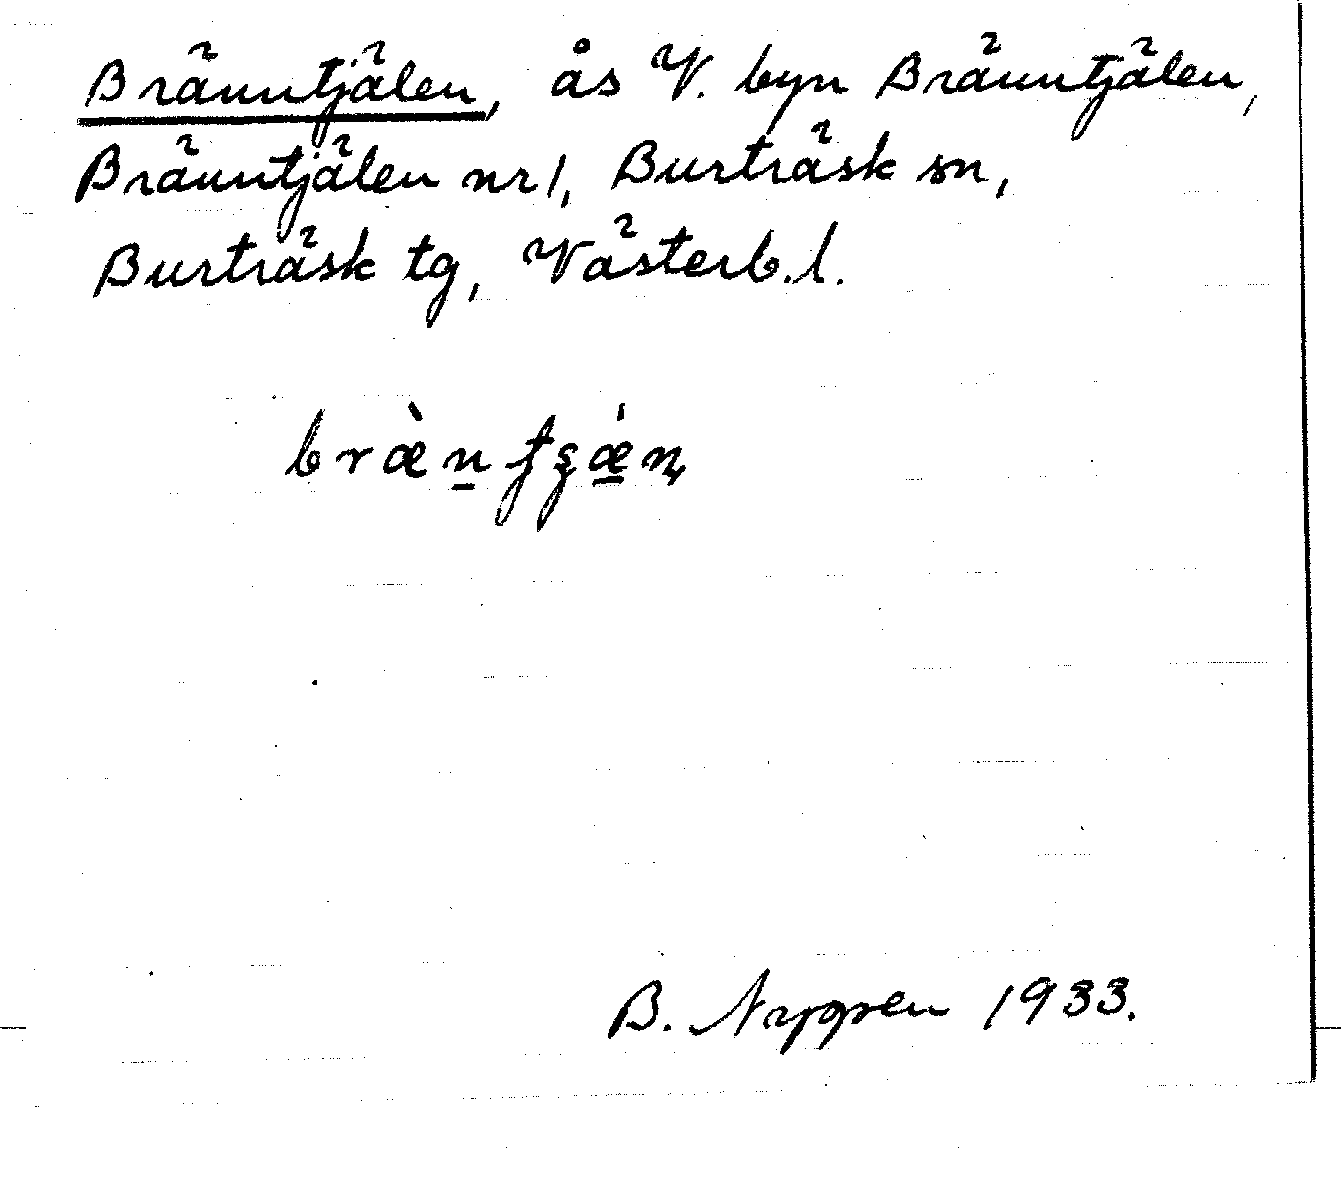 Bränntjälen, ås V. byn Bränntjälen,
Bränntjälen nr 1, Burträsk sn,
Burträsk tg, Västerb.l.
B. Nygren 1933.